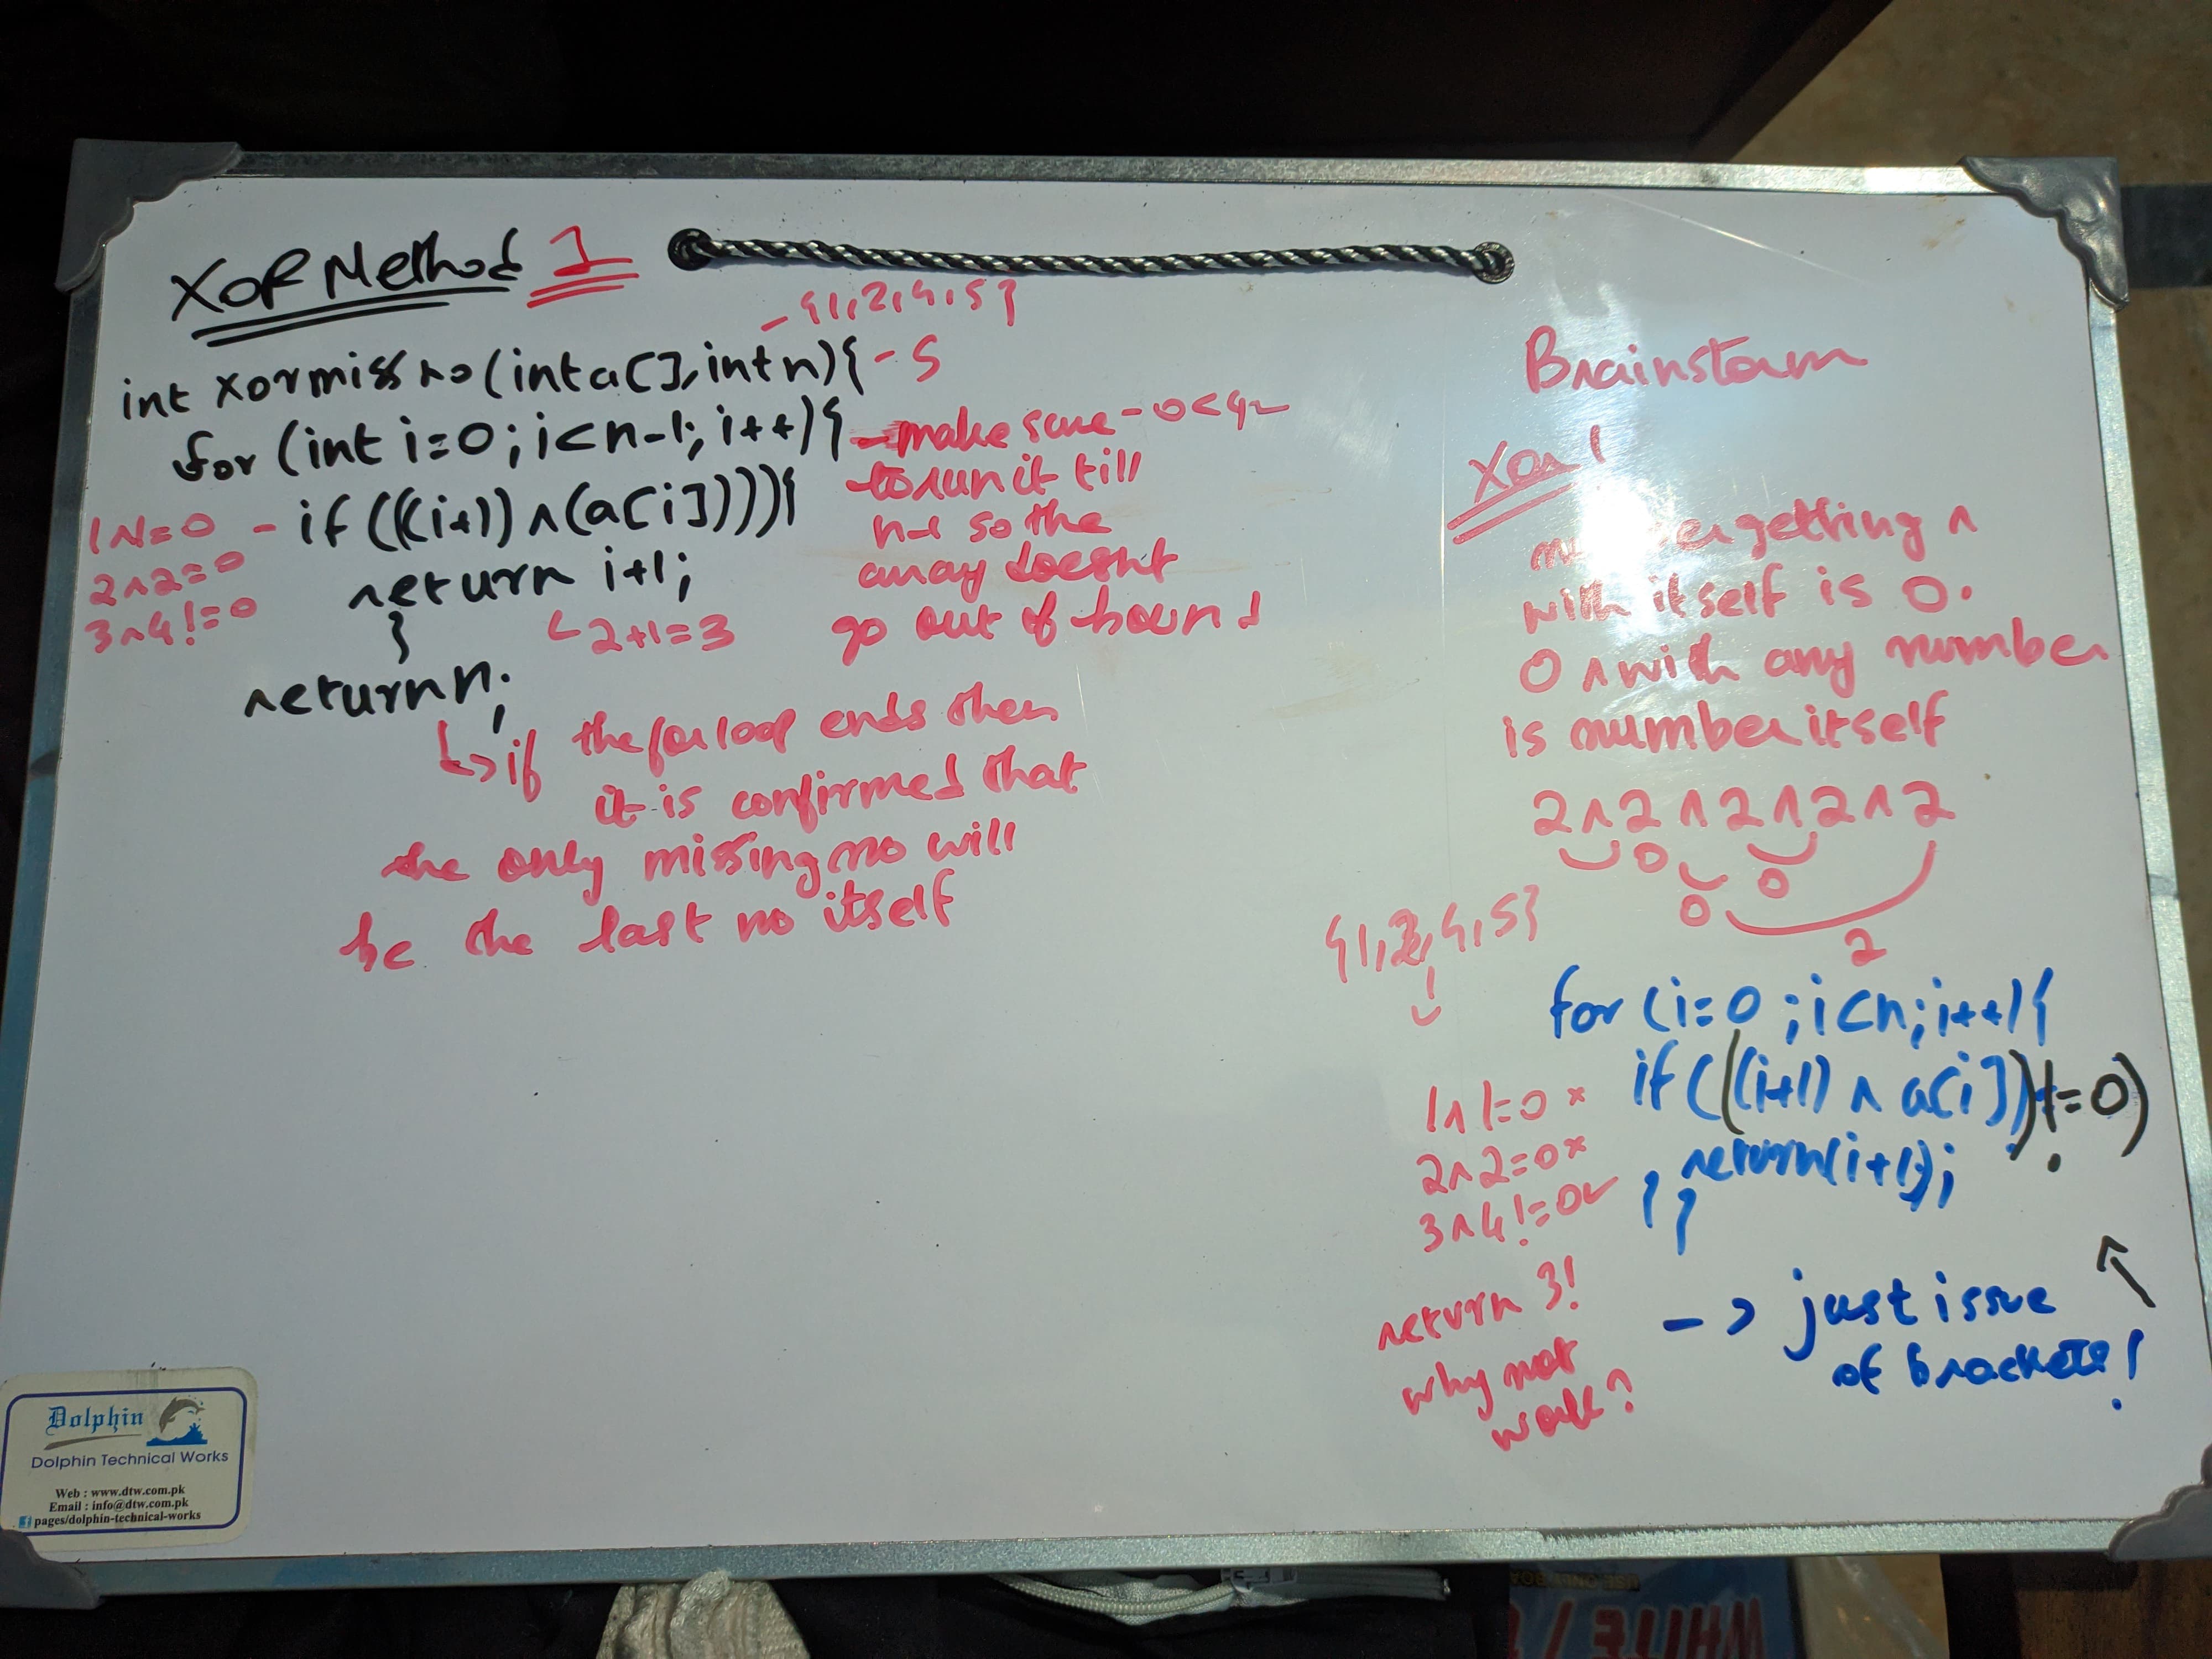 XOR Method 1
- {1,2,4,5}
int xormissno(int a[], int n){ - 5
for (int i=0; i<n-1; i++){ - make sure - 0<4
to run it till
n-1 so the
array doesnt
go out of bound
1^1=0 - if (((i+1)) ^ (a[i]))){
2^2=0
3^4!=0
return i+1;
↳ 2+1=3
}
return n;
↳ if the for loop ends then
it is confirmed that
the only missing no will
be the last no itself
Brainstorm
Xor 1
getting ^
with itself is 0.
0 ^ with any number
is number itself
2^2^2^2^2
0
0
0
2
{1,2,4,5}
for (i=0; i<n; i++){
if (((i+1) ^ a[i])!=0)
return(i+1);
} }
1^1=0 ×
2^2=0 ×
3^4!=0 ✓
return 3!
why not
work?
-> just issue
of brackets!
Dolphin
Dolphin Technical Works
Web : www.dtw.com.pk
Email : info@dtw.com.pk
pages/dolphin-technical-works
WHITE